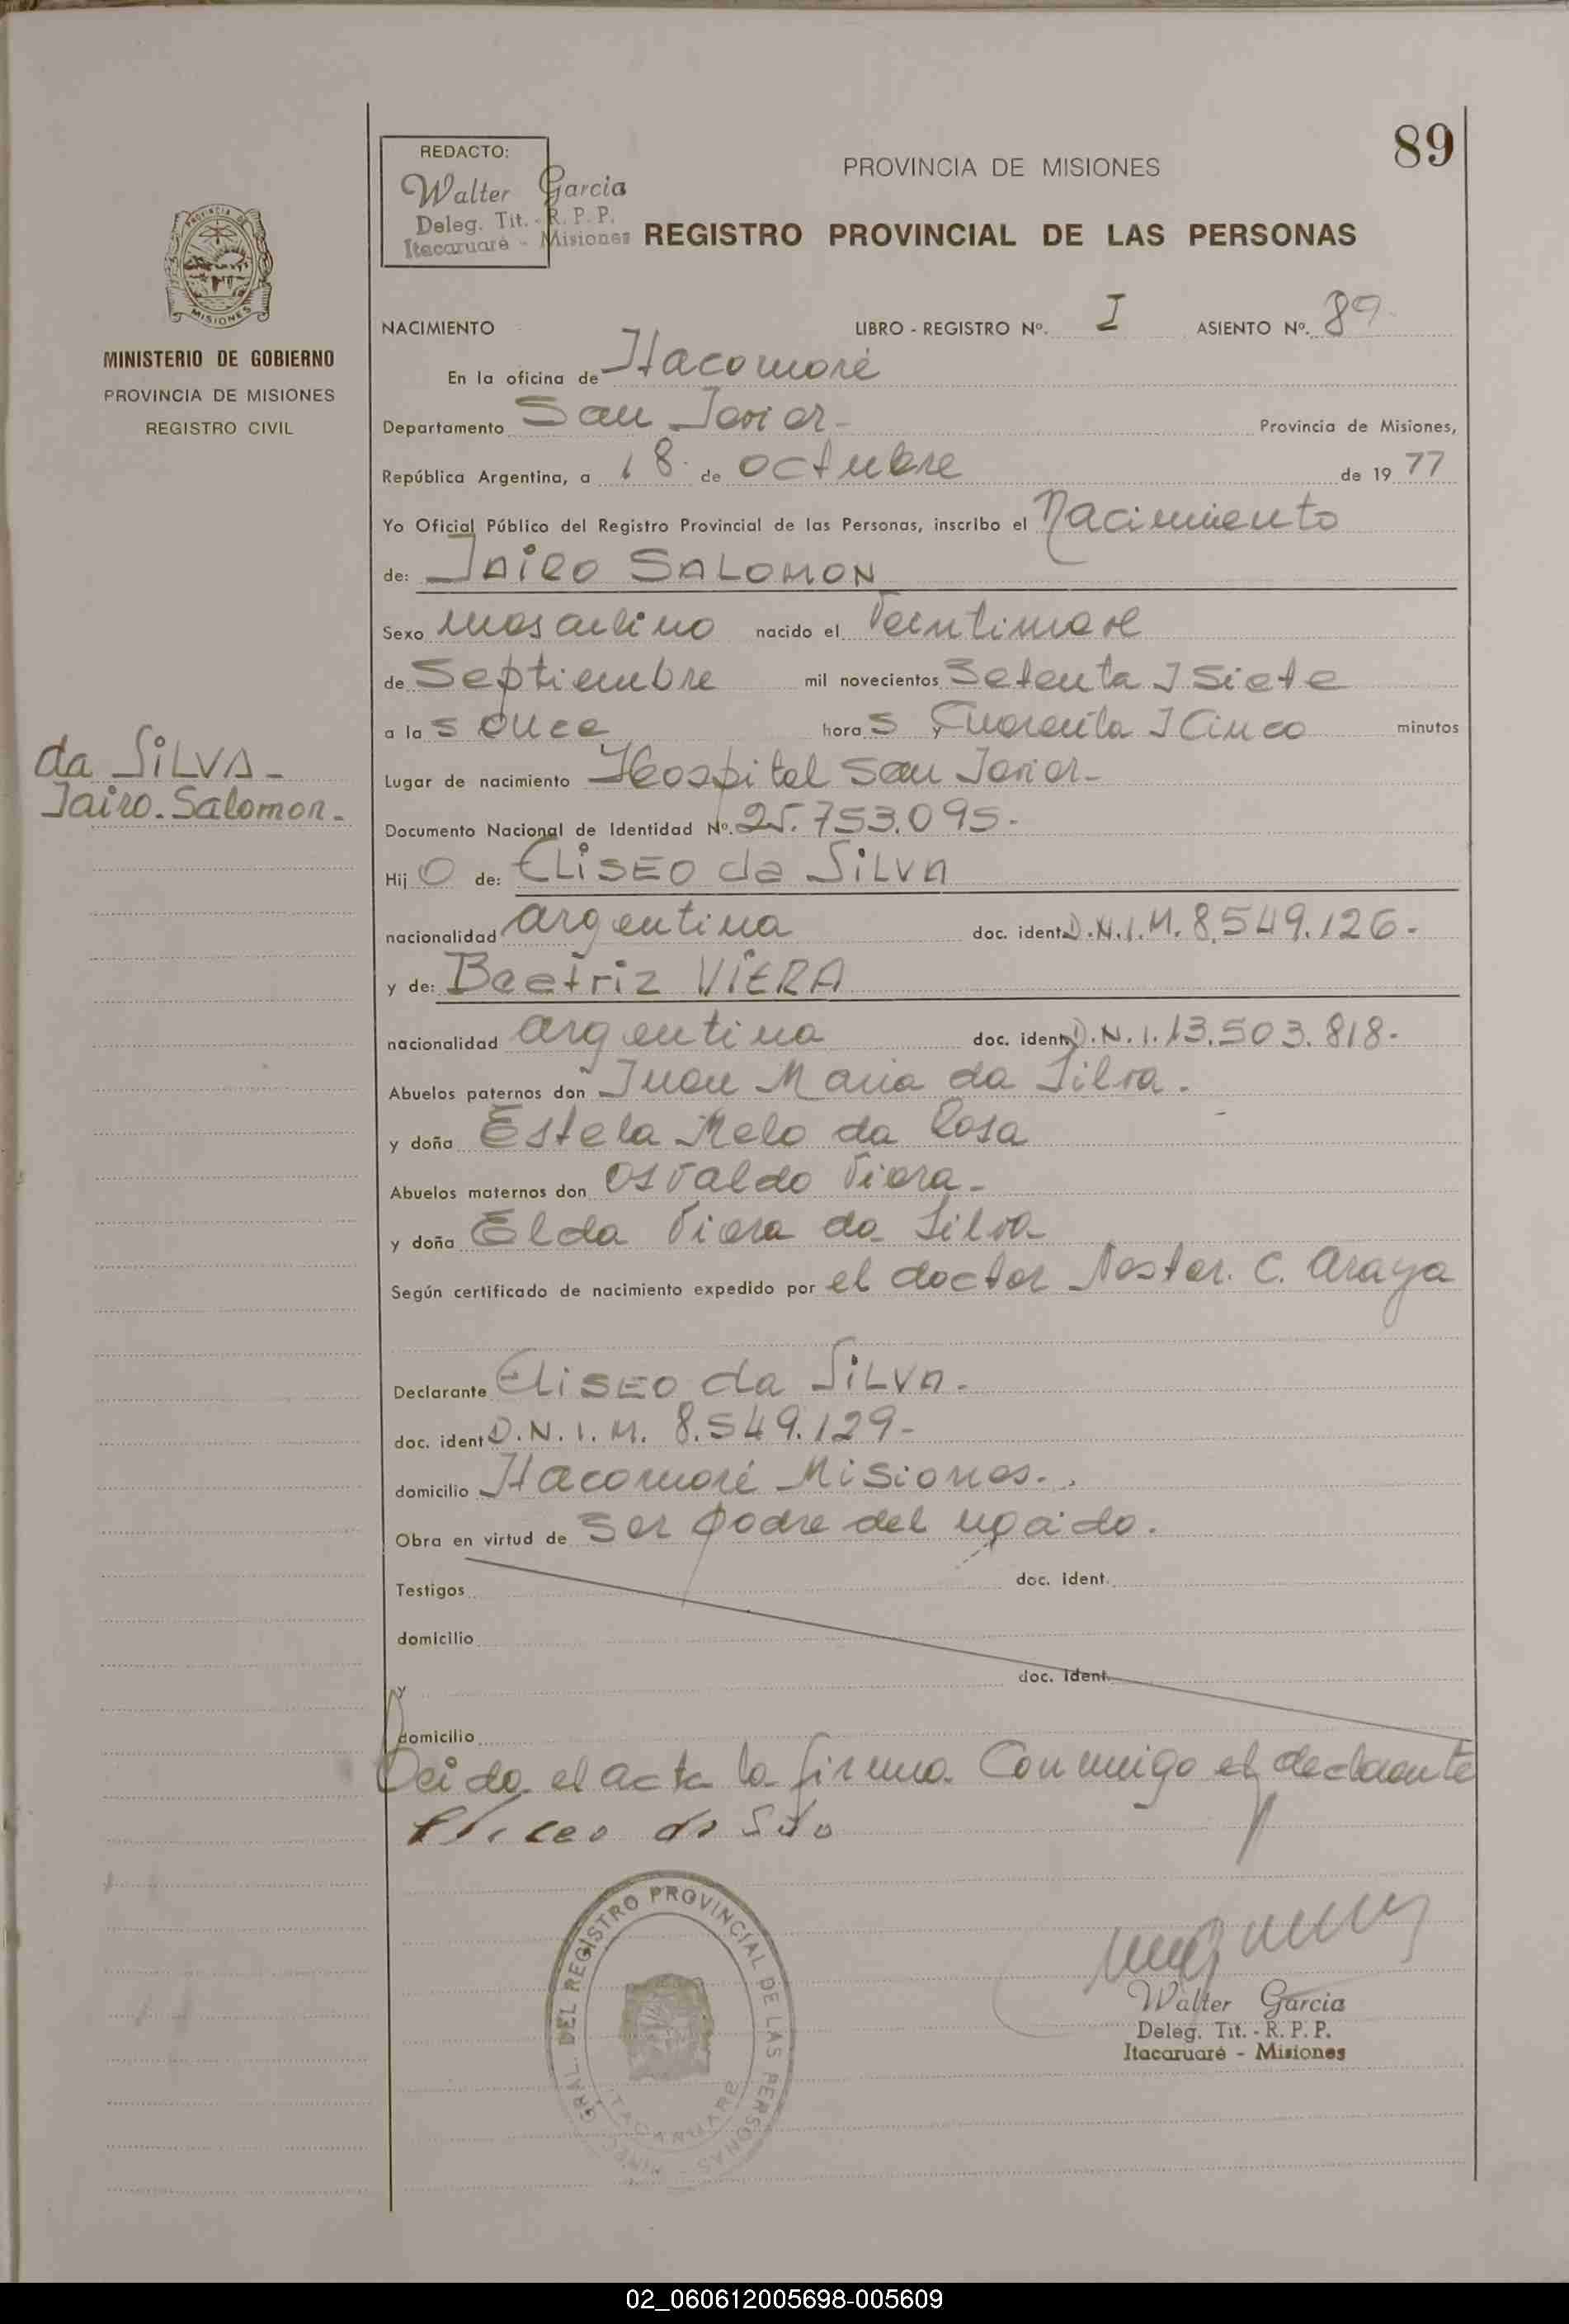 89
REDACTO:
Walter Garcia
Deleg. Tit. - R. P. P.
Itacaruaré - Misiones
PROVINCIA DE MISIONES
REGISTRO PROVINCIAL DE LAS PERSONAS
PROVINCIA DE
MISIONES
MINISTERIO DE GOBIERNO
PROVINCIA DE MISIONES
REGISTRO CIVIL
NACIMIENTO LIBRO - REGISTRO Nº. I ASIENTO Nº. 89
En la oficina de Itacaruaré
Departamento San Javier - Provincia de Misiones,
República Argentina, a 18 de octubre de 19 77
Yo Oficial Público del Registro Provincial de las Personas, inscribo el Nacimiento
de: JAiRO SALOMON
Sexo masculino nacido el Veintinueve
de Septiembre mil novecientos Setenta y Siete
a la s once hora s y Cuarenta y Cinco minutos
da SiLVA -
Jairo. Salomon. -
Lugar de nacimiento Hospital San Javier -
Documento Nacional de Identidad Nº. 25.753.095 -
Hij O de: ELiSEO da SiLVA
nacionalidad argentina doc. ident. D.N.I.M. 8.549.126 -
y de: Beatriz ViERA
nacionalidad argentina doc. ident. D.N.I. 13.503.818 -
Abuelos paternos don Juan Maria da Silva -
y doña Estela Melo da Rosa
Abuelos maternos don Osvaldo Viera -
y doña Elda Viera da Silva
Según certificado de nacimiento expedido por el doctor Nestor. C. Araya
Declarante ELiSEO da SiLVA -
doc. ident D.N.I.M. 8.549.129 -
domicilio Itacaruaré Misiones -
Obra en virtud de ser padre del nacido.
Testigos doc. ident.
domicilio
y doc. ident.
domicilio
Leida el acta la firma Conmigo el declarante
GRAL. DEL REGISTRO PROVINCIAL DE LAS PERSONAS
Walter Garcia
Deleg. Tit. - R. P. P.
Itacaruaré - Misiones
02_060612005698-005609